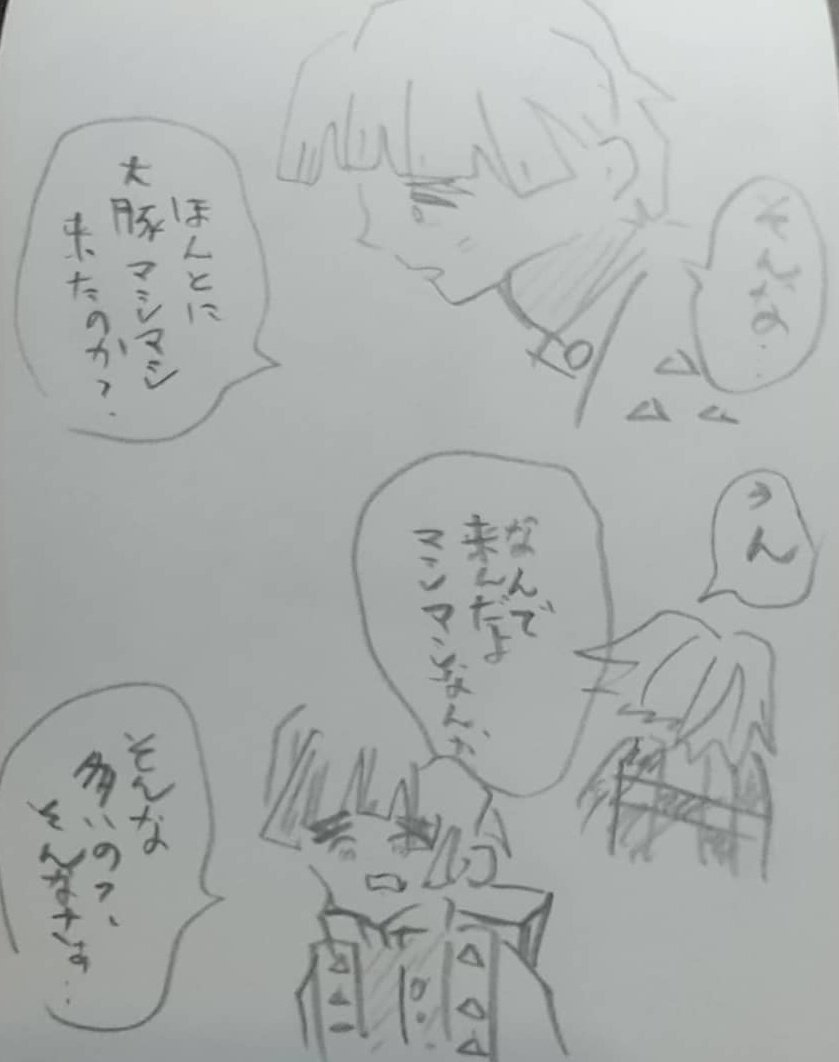 そんな…
ほんとに
大豚マシマシ
来たのか?
うん
なんで
来んだよ
マシマシなんか
そんな
多いの?、
そんなさぁ…